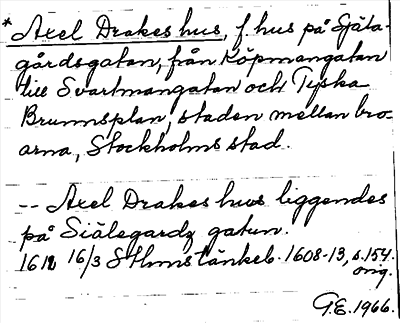 * Axel Drakes hus, f. hus på Själa-
gårdsgatan, från Köpmangatan
till Svartmangatan och Tyska
Brunnsplan, staden mellan bro-
arna, Stockholms stad.
-- Axel Drakes huus liggendes
på Siälegardz gatun.
1612 16/3 Sthms tänkeb. 1608-13, s. 154.
orig.
G.E. 1966.